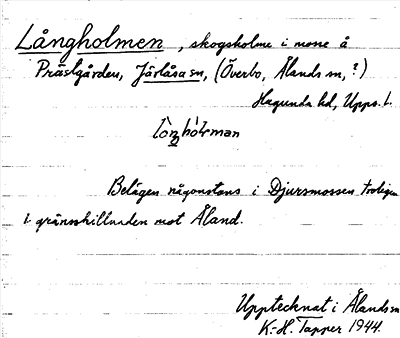 Långholmen, skogsholme i mosse å
Prästgården, Järlåsa sn, (Överbo, Ålands sn, ?)
Hagunda hd, Upps. l.
Belägen någonstans i Djursmossen troligen
i gränsskillnaden mot Åland.
Upptecknat i Ålands sn
K.-H. Tapper 1944.